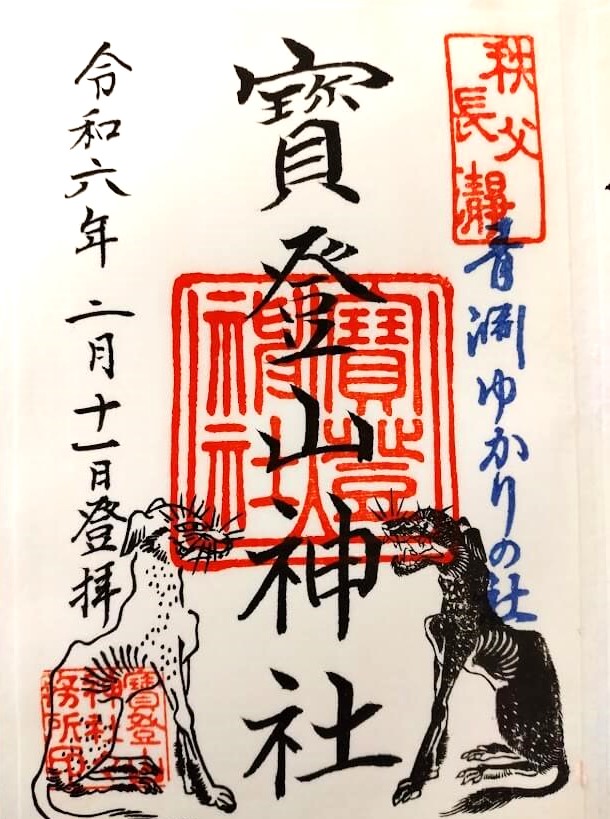 秩父
長瀞
青淵ゆかりの社
寳登山神社
寳登山
神社
令和六年二月十一日登拝
寳登山
神社社
務所印